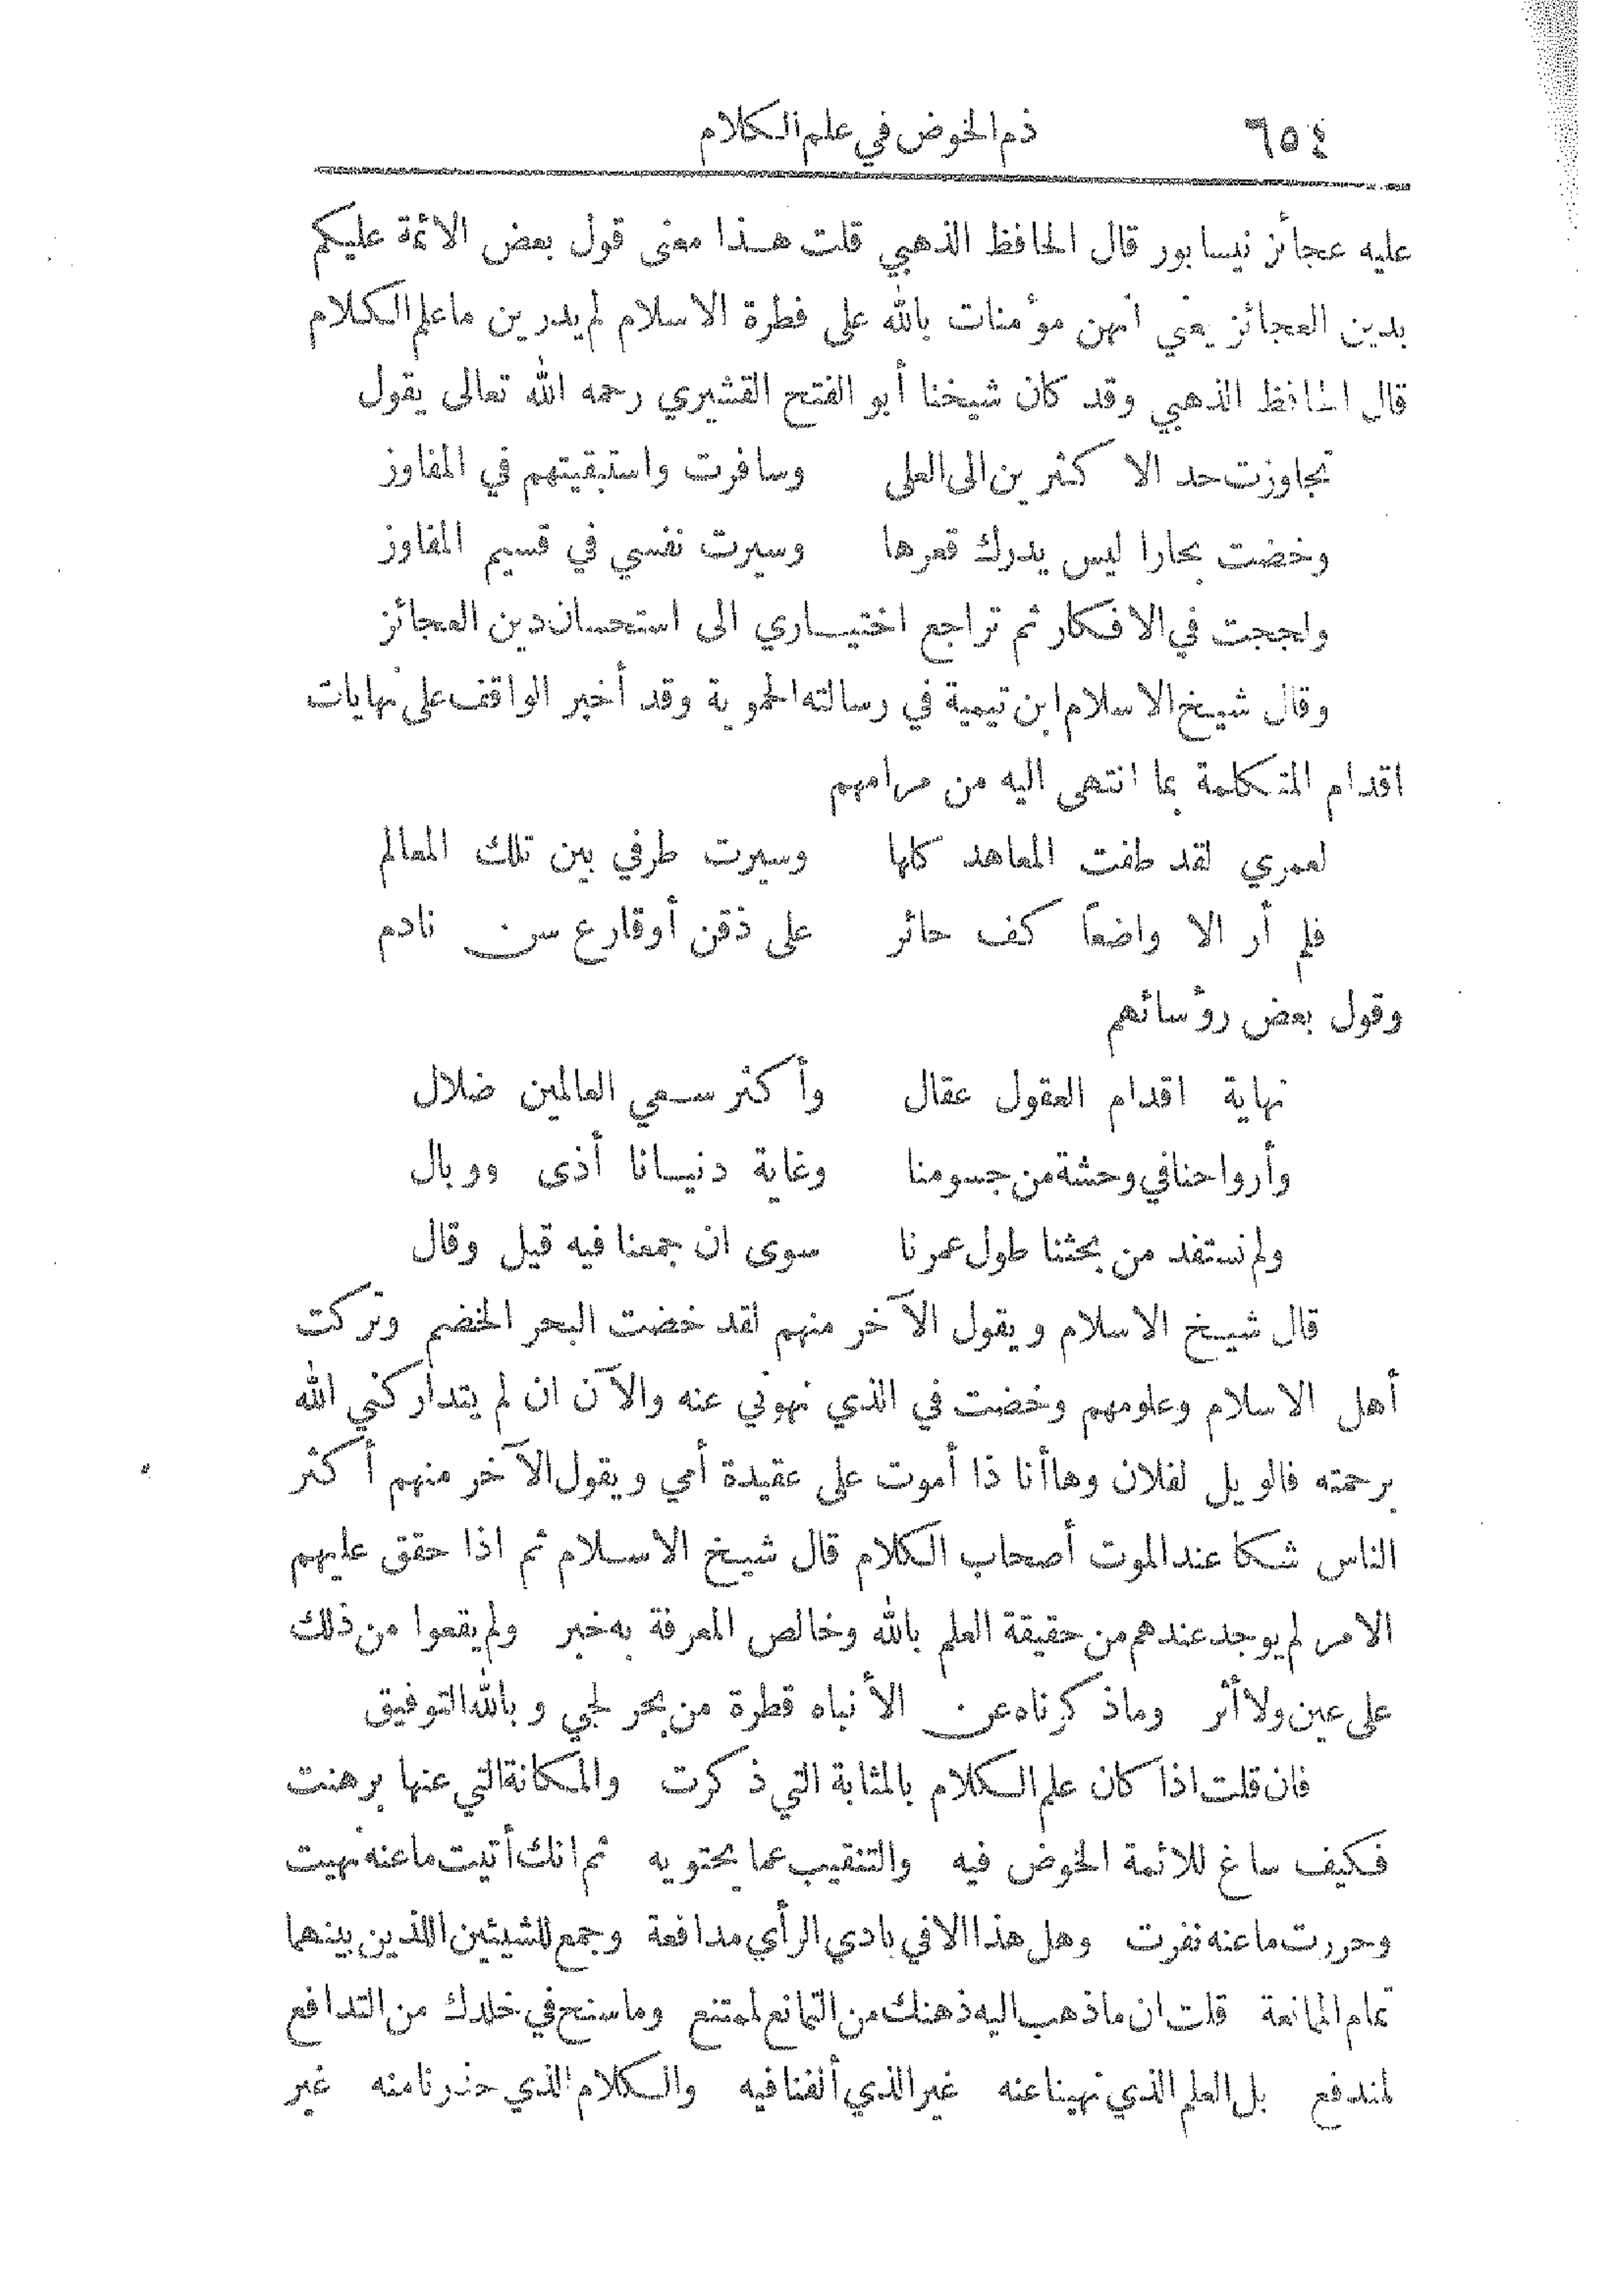 ٦٥٤ ذم الخوض في علم الكلام
عليه عجائز نيسابور قال الحافظ الذهبي قلت هذا معنى قول بعض الائمة عليكم
بدين العجائز يعني انهن مؤمنات بالله على فطرة الاسلام لم يدرين ما علم الكلام
قال الحافظ الذهبي وقد كان شيخنا أبو الفتح القشيري رحمه الله تعالى يقول
تجاوزت حد الاكثرين الى العلى وسافرت واستبقيتهم في المفاوز
وخضت بحارا ليس يدرك قعرها وسيرت نفسي في قسيم المفاوز
ولججت في الافكار ثم تراجع اختياري الى استحسان دين العجائز
وقال شيخ الاسلام ابن تيمية في رسالته الحموية وقد أخبر الواقف على نهايات
اقدام المتكلمة بما انتهى اليه من مرامهم
لعمري لقد طفت المعاهد كلها وسيرت طرفي بين تلك المعالم
فلم أر الا واضعاً كف حائر على ذقن أو قارع سن نادم
وقول بعض رؤسائهم
نهاية اقدام العقول عقال وأكثر سعي العالمين ضلال
وأرواحنا في وحشة من جسومنا وغاية دنيانا أذى ووبال
ولم نستفد من بحثنا طول عمرنا سوى ان جمعنا فيه قيل وقال
قال شيخ الاسلام ويقول الآخر منهم لقد خضت البحر الخضم وتركت
أهل الاسلام وعلومهم وخضت في الذي نهوني عنه والآن ان لم يتداركني الله
برحمته فالويل لفلان وها أنا ذا أموت على عقيدة أمي ويقول الآخر منهم أكثر
الناس شكا عند الموت أصحاب الكلام قال شيخ الاسلام ثم اذا حقق عليهم
الامر لم يوجد عندهم من حقيقة العلم بالله وخالص المعرفة به خبر ولم يقعوا من ذلك
على عين ولا أثر وما ذكرناه عن الأنباه قطرة من بحر لجي وبالله التوفيق
فان قلت اذا كان علم الكلام بالمثابة التي ذكرت والمكانة التي عنها برهنت
فكيف ساغ للائمة الخوض فيه والتنقيب عما يحتويه ثم انك أتيت ما عنه نهيت
وحررت ما عنه نفرت وهل هذا الا في بادي الرأي مدافعة وجمع للشيئين اللذين بينهما
تمام الممانعة قلت ان ما ذهب اليه ذهنك من التمانع لممتنع وما سنح في خلدك من التدافع
لمندفع بل العلم الذي نهينا عنه غير الذي ألفنا فيه والكلام الذي حذرنا منه غير